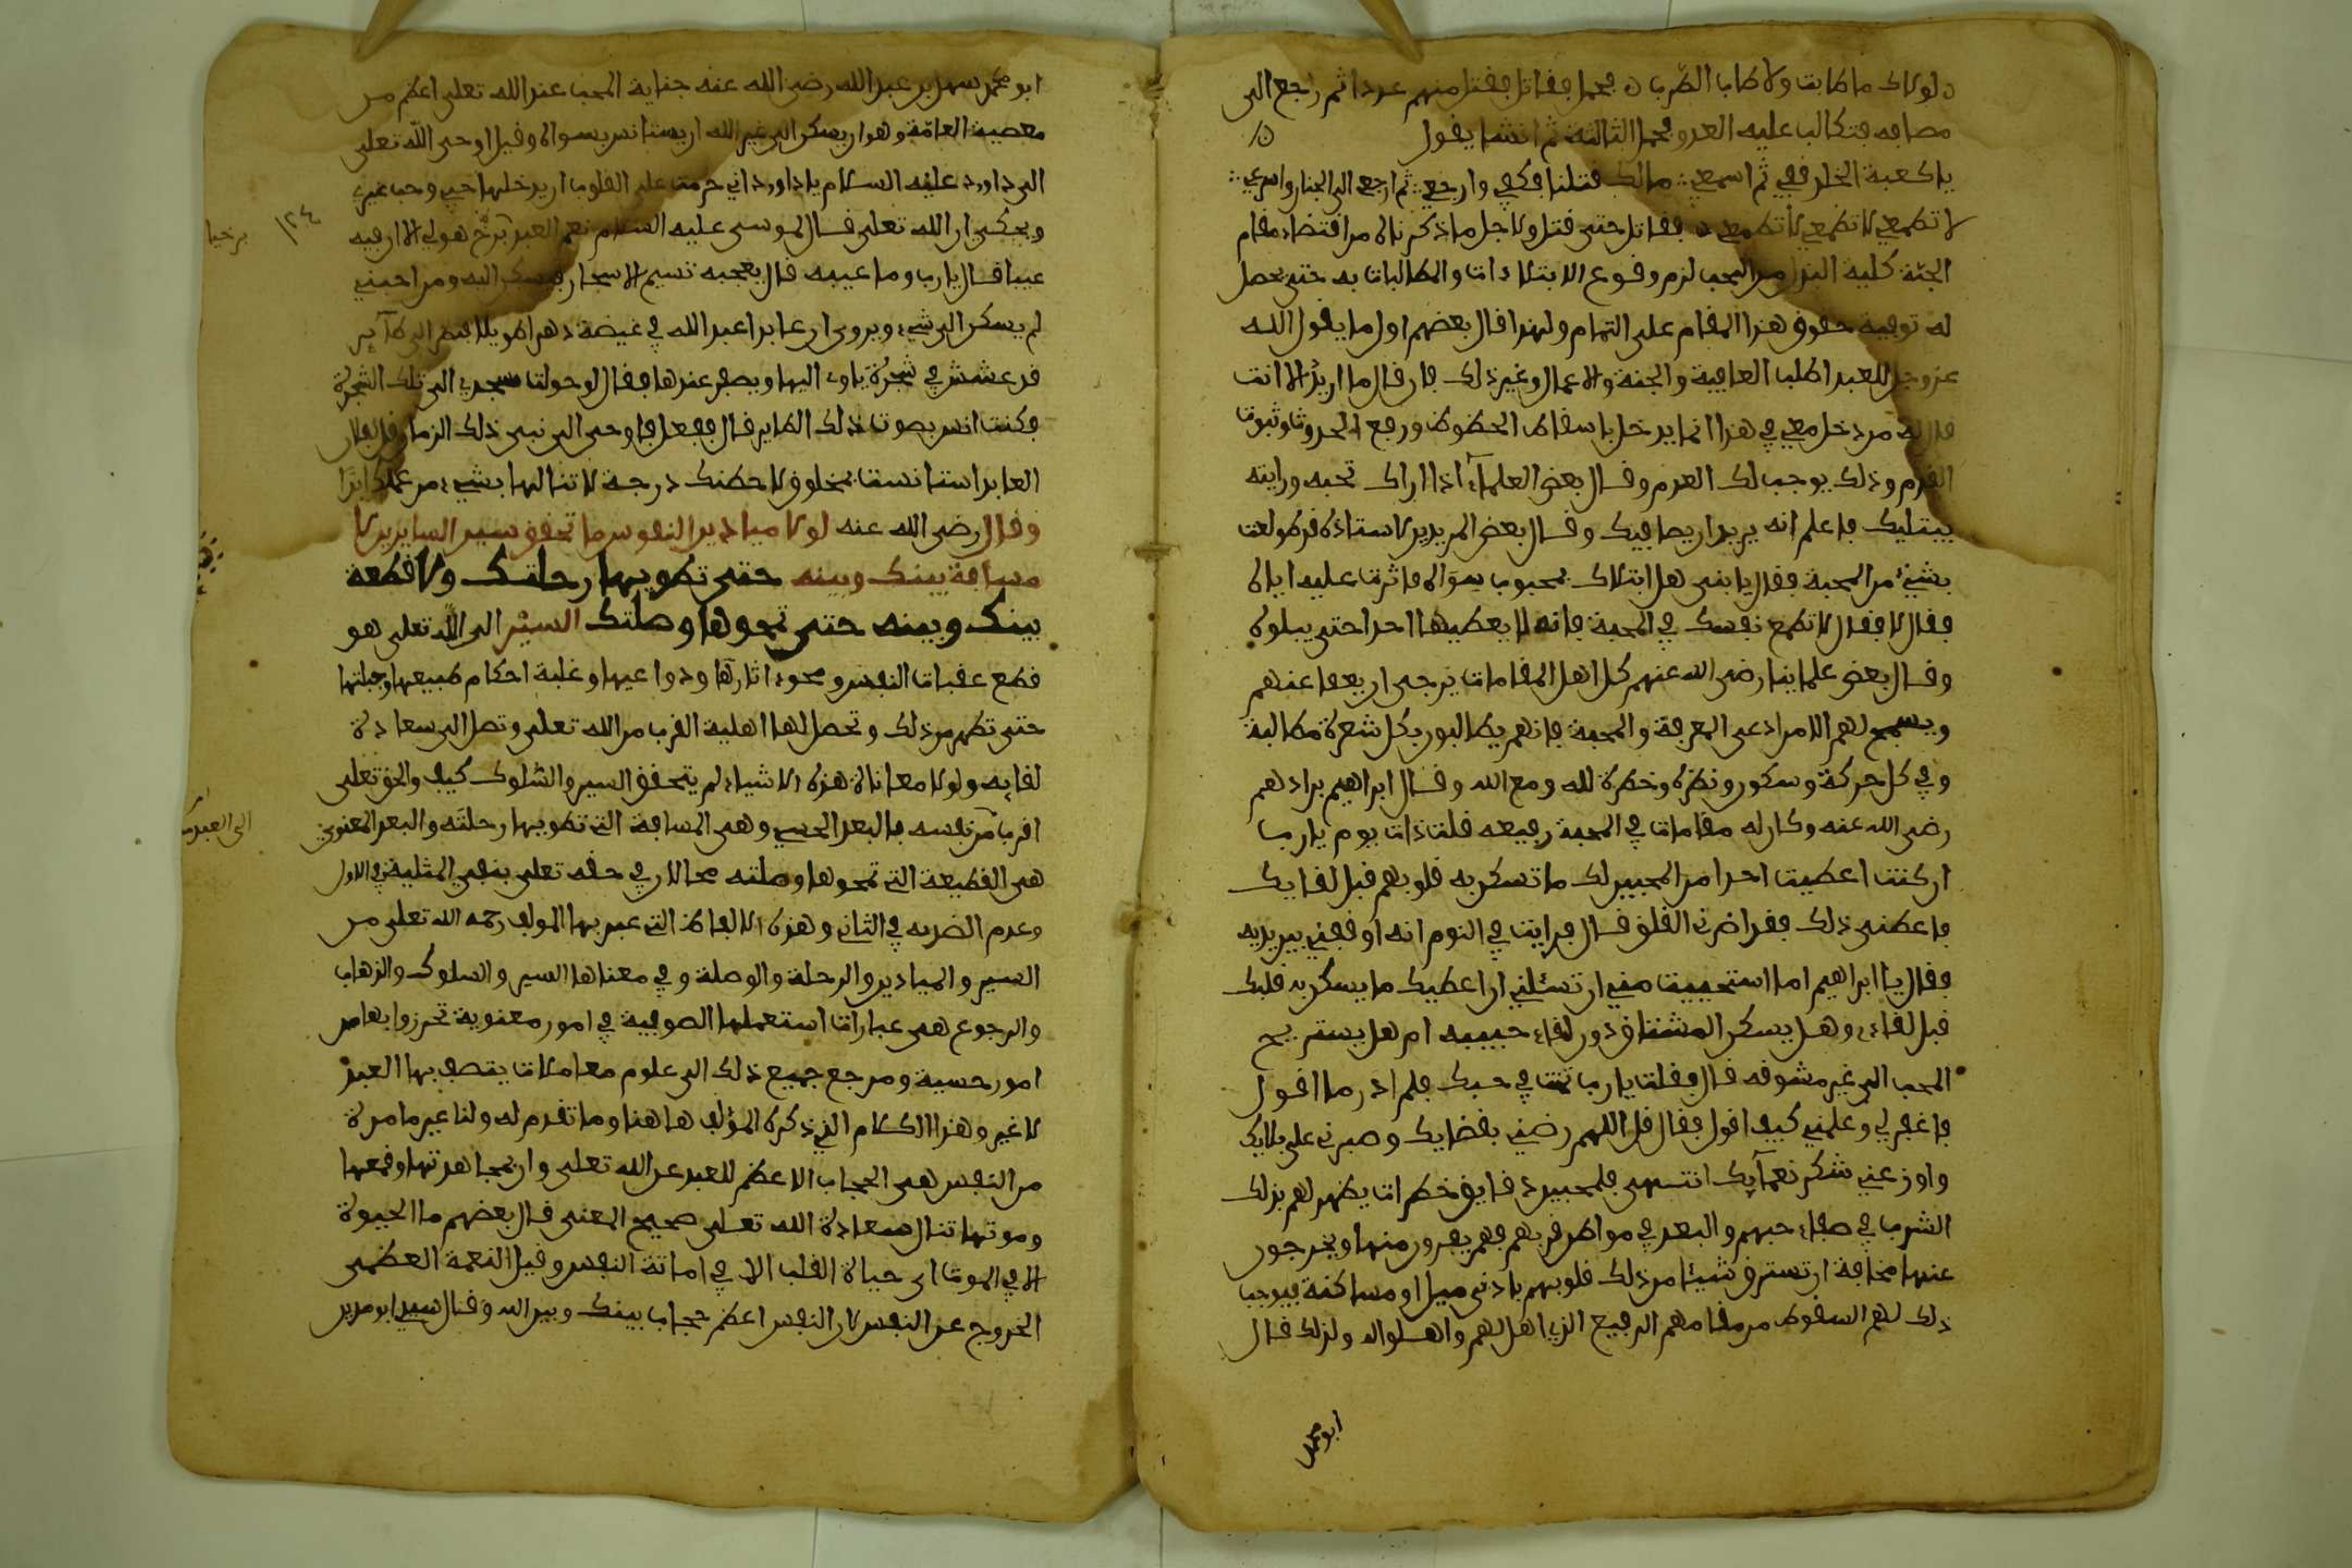 لولاك ما طابت ولا طاب الطرب فحمل فقاتل فقتل منهم عددا ثم رجع الى
مصافه فتكالب عليه العدو فحمل الثالثة ثم انشا يقول
يا كعبة الخلد قفي ثم اسمعي مالك قتلنا فكفي وارجعي ثم ارجعي الى الجنان واسرعي
لا تطمعي لا تطمعي لا تطمعي فقاتل حتى قتل ولاجل ما ذكرناه من اقتضاء مقام
المحبة كلية البذل من المحب لزم وقوع الابتلاءات والمطالبات به حتى يحصل
له توفية حقوق هذا المقام على التمام ولهذا قال بعضهم اول ما يقول الله
عز وجل للعبد اطلب العافية والجنة والاعمال وغير ذلك فان قال ما اريد الا انت
قال له من دخل معي في هذا انما يدخل باسقاط الحظوظ ورفع الحدوث وثبوت
القدم وذلك يوجب لك العدم وقال بعض العلماء اذا اراك تحبه ورايته
يبتليك فاعلم انه يريد ان يصافيك وقال بعض المريدين لاستاذه قد طولعت
بشيء من المحبة فقال يا بني هل ابتلاك بمحبوب سواه فاثرت عليه اياه
فقال لا فقال لا تطمع نفسك في المحبة فانه لا يعطيها احدا حتى يبلوه
وقال بعض علماينا رضي الله عنهم كل اهل المقامات يرجى ان يعفا عنهم
ويسمح لهم الا من ادعى المعرفة والمحبة فانهم يطالبون بكل شعرة مطالبة
وفي كل حركة وسكون ونظرة وخطرة لله ومع الله وقال ابراهيم بن ادهم
رضي الله عنه وكان له مقامات في المحبة رفيعه قلت ذات يوم يا رب
ان كنت اعطيت احدا من المحبين لك ما تسكن به قلوبهم قبل لقايك
فاعطني ذلك فقد اضرني القلق قال فرايت في النوم انه اوقفني بين يديه
فقال يا ابراهيم اما استحييت مني ان تسئلني ان اعطيك ما يسكن به قلبك
قبل لقاءي وهل يسكن المشتاق دون لقاء حبيبه ام هل يستريح
المحب الى غير مشوقه قال فقلت يا رب تهت في حبك فلم ادر ما اقول
فاغفر لي وعلمني كيف اقول فقال قل اللهم رضني بقضايك وصبرني على بلايك
واوزعني شكر نعمايك انتهى فللمحبين دقايق خطرات يظهر لهم بذلك
الشرب في صفاء حبهم والبعد في مواطن قربهم فهم يفرون منها ويخرجون
عنها مخافة ان تسترق شيئا من ذلك قلوبهم بادنى ميل او مساكنة فيوجب
ذلك لهم السقوط من مقامهم الرفيع الذي اهل لهم واهلوا له ولذلك قال
ابو محمد
ابو محمد سهل بن عبد الله رضي الله عنه جناية المحب عند الله تعلى اعظم من
معصية العامة وهو ان يسكن الى غير الله او يستانس بسواه وقيل اوحى الله تعلى
الى داوود عليه السلام يا داوود اني حرمت على القلوب ان يدخلها حبي وحب غيري
ويحكى ان الله تعلى قال لموسى عليه السلام نعم العبد برخ هو لي الا ان فيه
عيبا قال يا رب وما عيبه قال يعجبه نسيم الاسحار فيسكن اليه ومن احبني
لم يسكن الى شيء ويروى ان عابدا عبد الله في غيضة دهرا طويلا فنظر الى طاير
قد عشش في شجرة ياوي اليها ويصفر عندها فقال لو حولت مسجدي الى تلك الشجرة
فكنت انس بصوت ذلك الطاير قال ففعل فاوحى الى نبي ذلك الزمان قل لفلان
العابد استانست بمخلوق لاحطنك درجة لا تنالها بشيء من عملك ابدا
وقال رضي الله عنه لولا ميادين النفوس ما تحقق سير السايرين لا
مسافة بينك وبينه حتى تطويها رحلتك ولا قطعة
بينك وبينه حتى تمحوها وصلتك السير الى الله تعلى هو
قطع عقبات النفس ومحو اثارها ودواعيها وغلبة احكام طبيعها وجبلتها
حتى تطهر من ذلك وتحصل لها اهلية القرب من الله تعلى وتصل الى سعادة
لقايه ولولا معاناة هذه الاشياء لم يتحقق السير والسلوك كيف والحق تعلى
اقرب من نفسه فالبعد الحسي وهي المسافة التي تطويها رحلته والبعد المعنوي
هي القطيعة التي تمحوها وصلته محالان في حقه تعلى بنفي المثلية في الاول
وعدم الضدية في الثاني وهذه الالفاظ التي عبر بها المولف رحمه الله تعلى من
السير والميادين والرحلة والوصلة وفي معناها السير والسلوك والذهاب
والرجوع هي عبارات استعملها الصوفية في امور معنوية تحرزوا بها من
امور حسية ومرجع جميع ذلك الى علوم معاملات يتصف بها العبد
لا غير وهذا الكلام الذي ذكره المؤلف هاهنا وما تقدم له ولنا غير ما مرة
من النفس هي الحجاب الاعظم للعبد عن الله تعلى وان بمجاهدتها وقمعها
وموتها تنال سعادة الله تعلى صحيح المعنى قال بعضهم ما الحيوة
الا في الموت اي حياة القلب الا في اماتة النفس وقيل النعمة العظمى
الخروج عن النفس لان النفس اعظم حجاب بينك وبين الله وقال سيدي ابو مدين
برخيا
١٢٤
الى العبد من